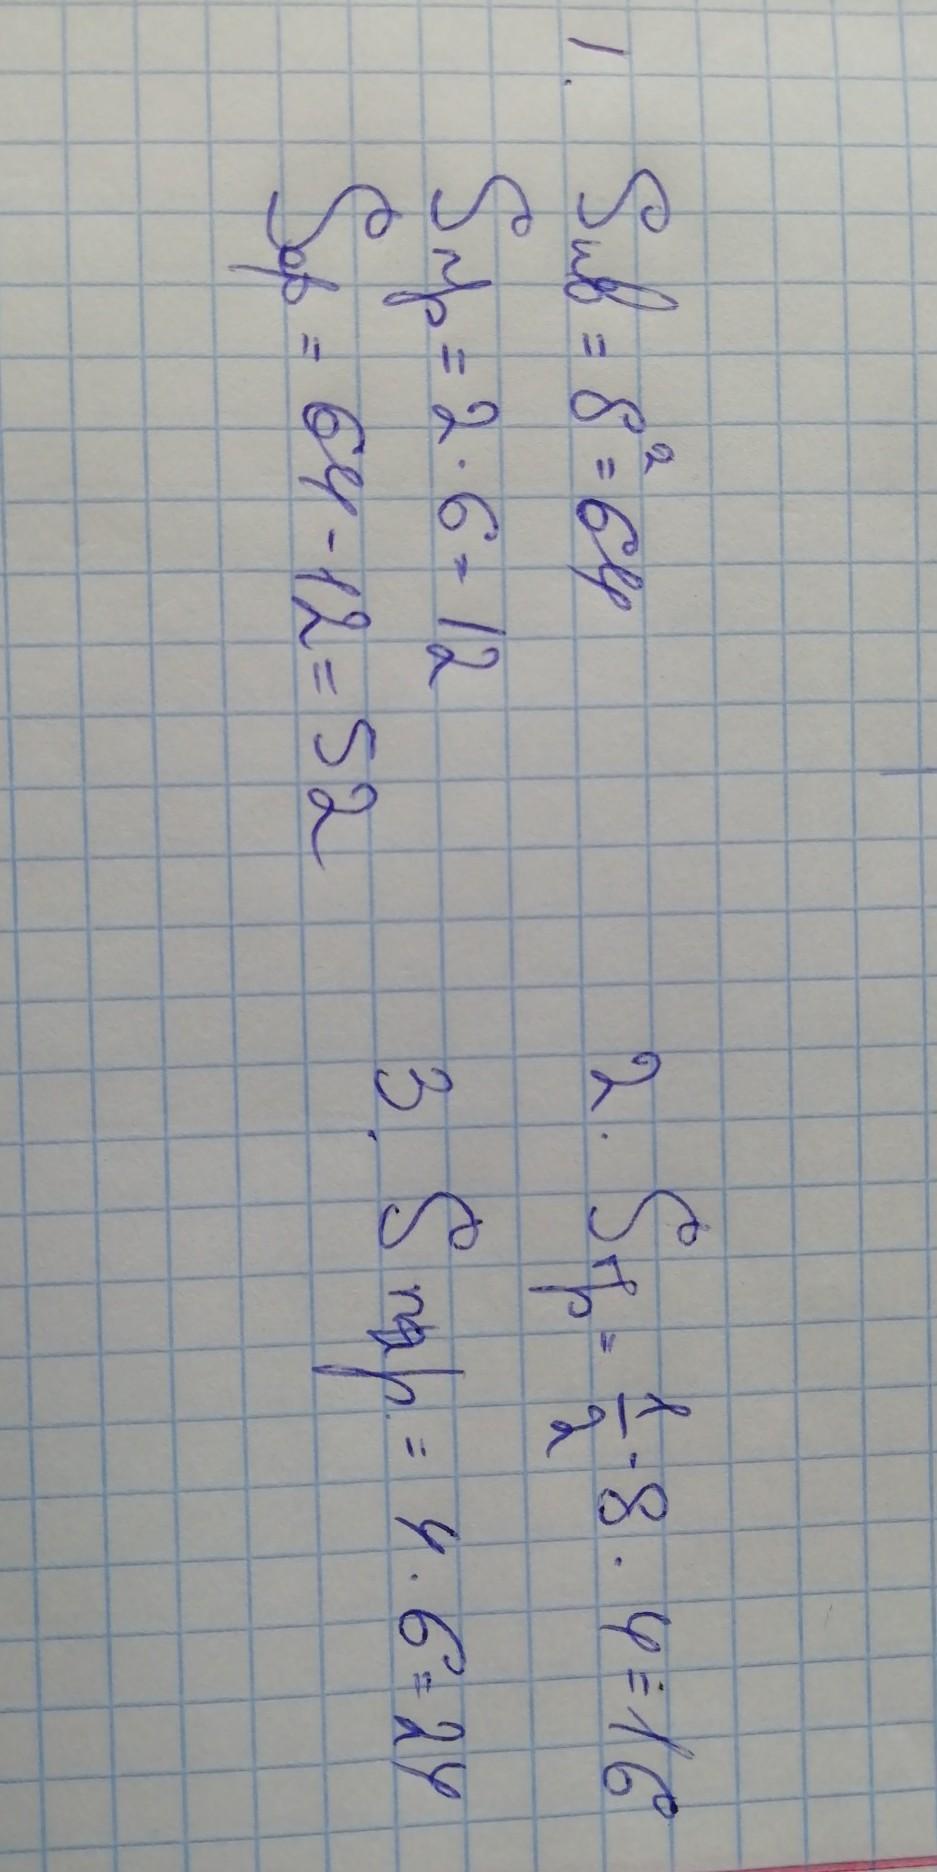 1. Sкв = 8² = 64
Sпр = 2 · 6 = 12
Sф = 64 - 12 = 52
2. Sтр = 1/2 · 8 · 4 = 16
3. Sпар. = 4 · 6 = 24